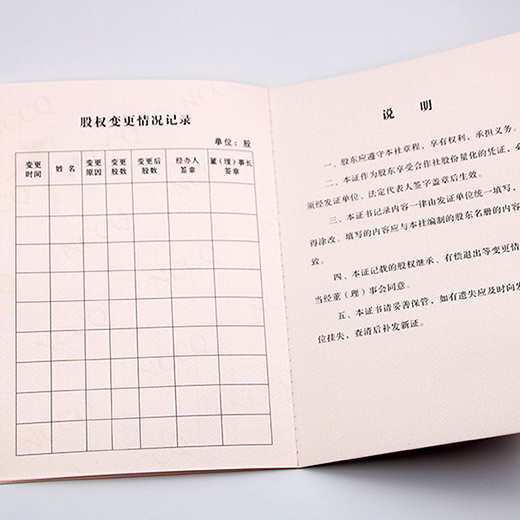 股权变更情况记录
单位：股
变更时间
姓名
变更原因
变更股数
变更后股数
经办人签章
董（理）事长签章
说 明
一、股东应遵守本社章程，享有权利，承担义务。
二、本证作为股东享受合作社股份量化的凭证，必
须经发证单位、法定代表人签字盖章后生效。
三、本证书记录内容一律由发证单位统一填写，
得涂改。填写的内容应与本社编制的股东名册的内容
致。
四、本证记载的股权继承、有偿退出等变更情
当经董（理）事会同意。
五、本证书请妥善保管，如有遗失应及时向发
位挂失，查清后补发新证。